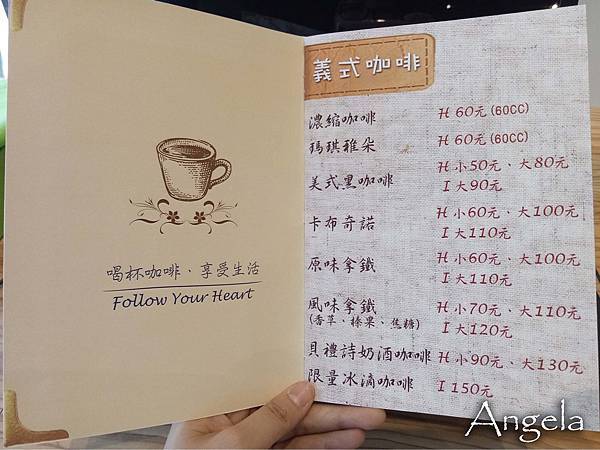 喝杯咖啡、享受生活
Follow Your Heart
義式咖啡
濃縮咖啡 H 60元(60CC)
瑪琪雅朵 H 60元(60CC)
美式黑咖啡 H 小50元、大80元
I 大90元
卡布奇諾 H 小60元、大100元
I 大110元
原味拿鐵 H 小60元、大100元
I 大110元
風味拿鐵 H 小70元、大110元
(香草、榛果、焦糖) I 大120元
貝禮詩奶酒咖啡 H 小90元、大130元
限量冰滴咖啡 I 150元
Angela